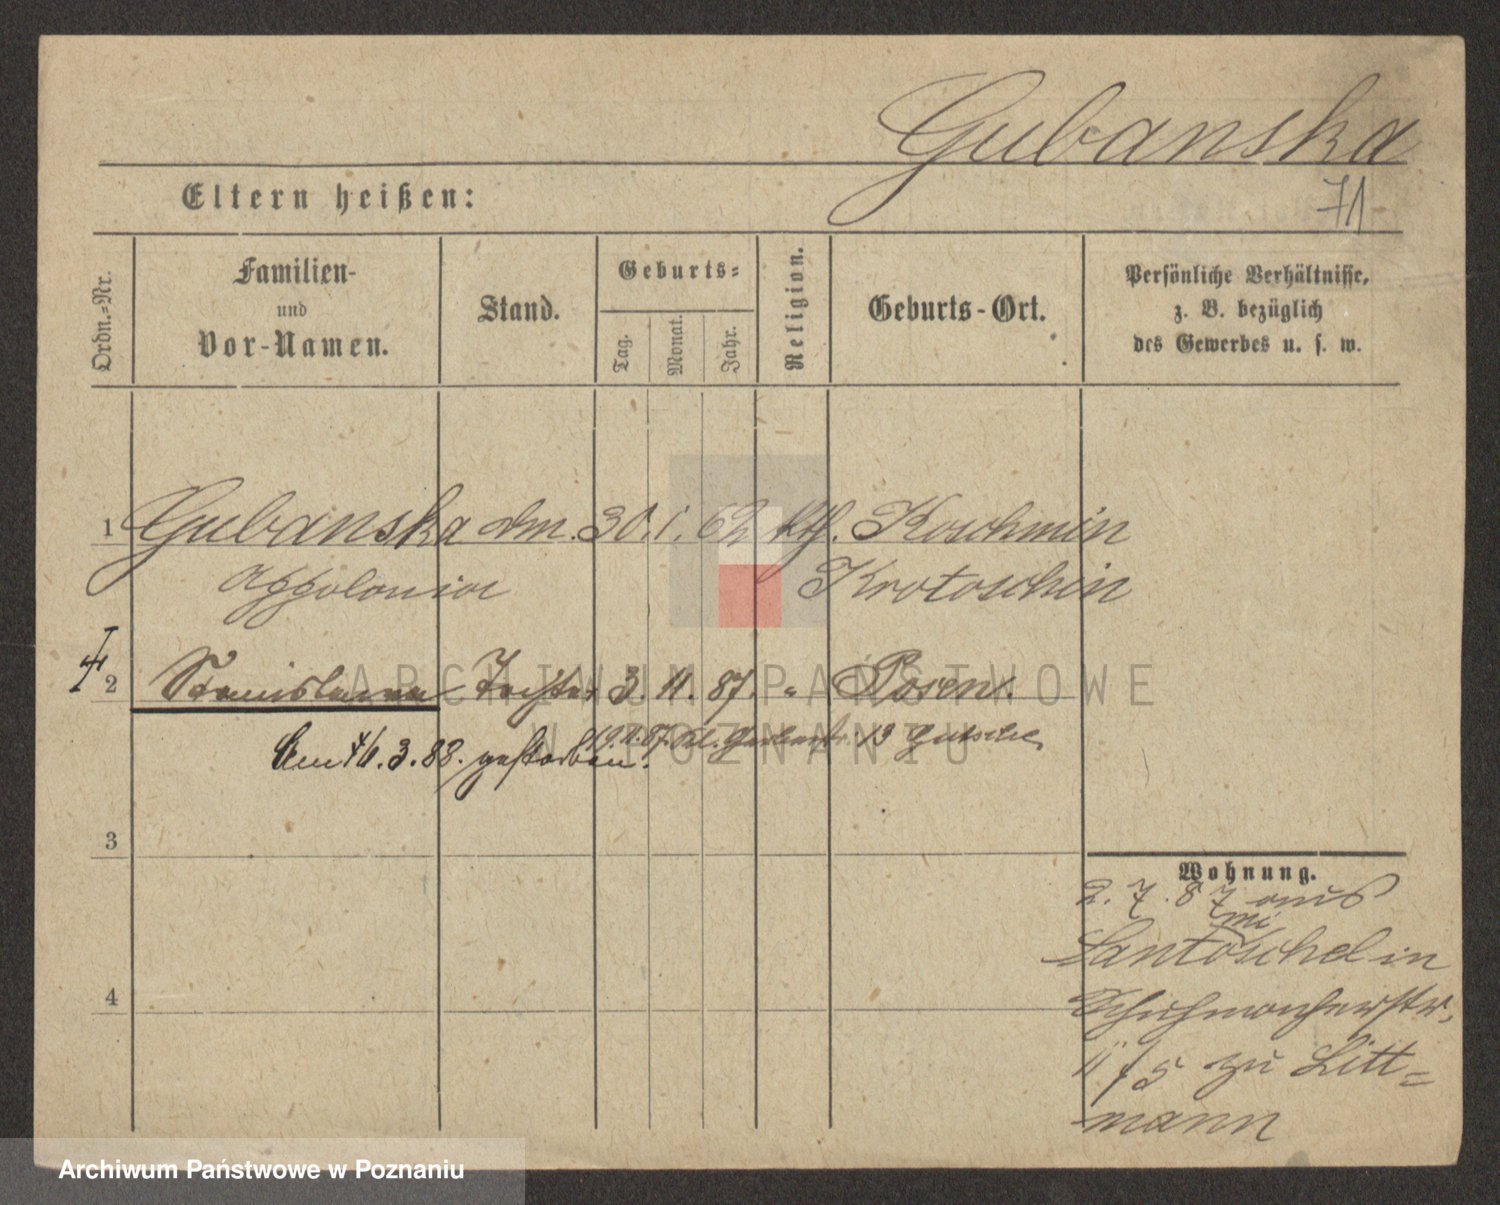 Gubanska
71
Eltern heißen:
Ordn.-Nr.
Familien-
und
Vor-Namen.
Stand.
Geburts-
Tag.
Monat.
Jahr.
Religion.
Geburts-Ort.
Persönliche Verhältnisse,
z. B. bezüglich
des Gewerbes u. s. w.
1 Gubanska dm. 30. 1. 62 kth. Koschmin
Appolonia Krotoschin
2 Stanislawa Tochter 3. 11. 87. " Posen.
19. 11. 87. 13
Am 16. 3. 88. gestorben.
3
4
Wohnung.
2. 7. 87 aus
Santomischel in
Schuhmacherstr.
11/ 5 zu Litt=
mann
ARCHIWUM PAŃSTWOWE
W POZNANIU
Archiwum Państwowe w Poznaniu